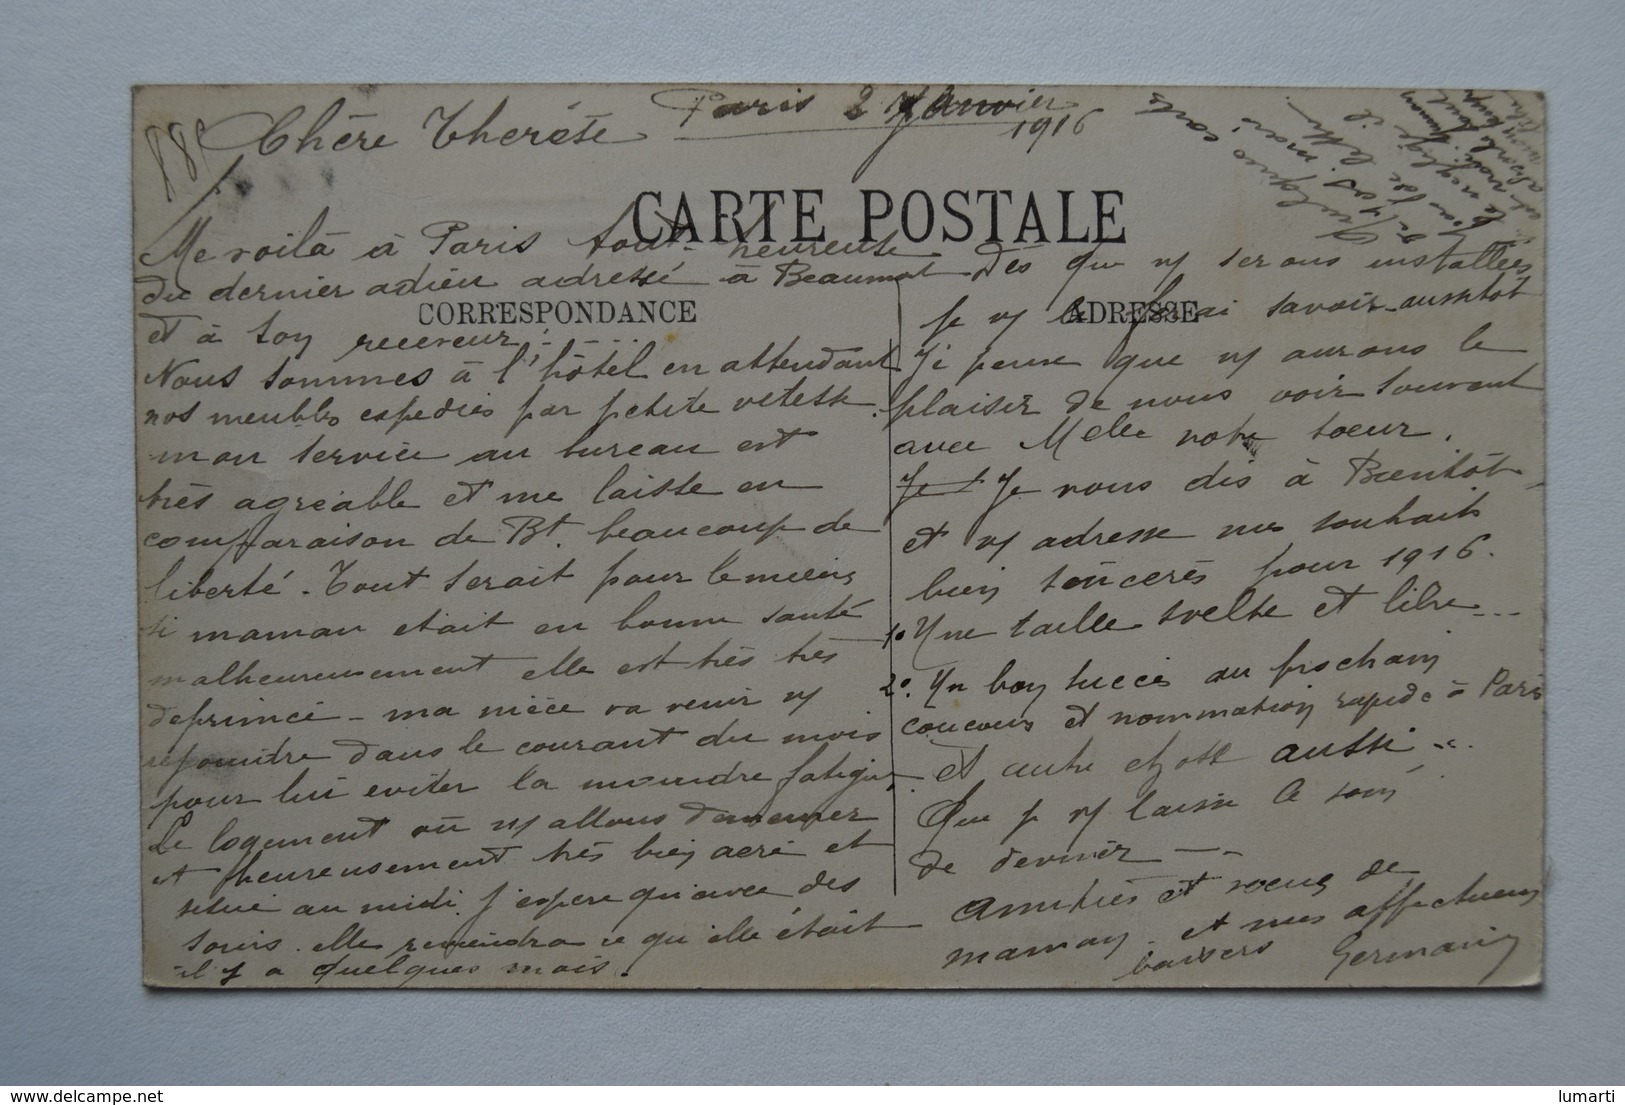 Paris 2 Janvier
1916
Chère Therèse
CARTE POSTALE
CORRESPONDANCE
ADRESSE
Me voilà à Paris tout heureuse
du dernier adieu adressé à Beaumont
et à son receveur
Nous sommes à l'hôtel en attendant
nos meubles expediés par petite vitesse.
mon service au bureau est
très agréable et me laisse en
comparaison de Bt. beaucoup de
liberté. Tout serait pour le mieux
si maman etait en bonne santé
malheureusement elle est très très
deprimée - ma nièce va venir ns
rejoindre dans le courant du mois
pour lui eviter la moindre fatigue
Le logement où ns allons demeurer
est heureusement très bien aeré et
situé au midi. J'espere qu'avec des
soins elle reviendra ce qu'elle était
il y a quelques mois.
Dès que ns serons installées
je vs le ferai savoir aussitôt
Je pense que ns aurons le
plaisir de nous voir souvent
avec Melle votre soeur.
Je vous dis à Bientôt
et vs adresse mes souhaits
bien sincères pour 1916.
1o Une taille svelte et libre...
2o. Un bon succès au prochain
concours et nommation rapide à Paris
et autre chose aussi...
Que je vs laisse le soin
de deviner - -
Amitiés et voeux de
maman - et mes affectueux
baisers Germaine
lumarti